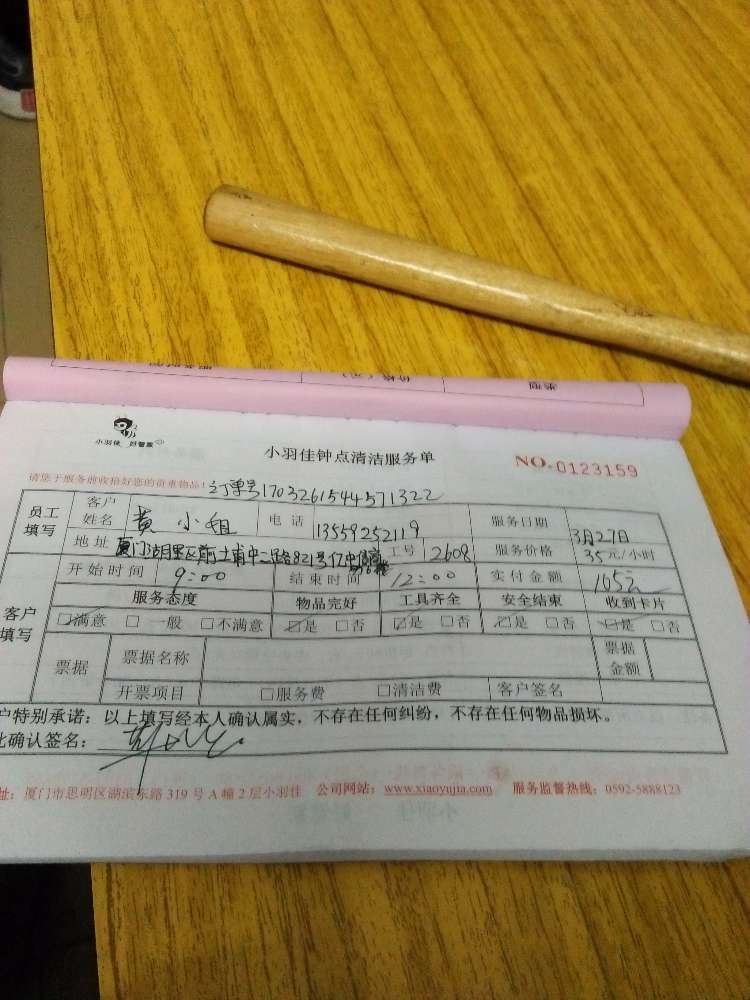 小羽佳 好管家
小羽佳钟点清洁服务单
NO.0123159
请您于服务前收拾好您的贵重物品!
订单号1703261544571322
员工填写 客户姓名 黄小姐 电话 13559252119 服务日期 3月27日
地址 厦门湖里区前埔中二路821号 工号 2608 服务价格 35元/小时
开始时间 9:00 结束时间 12:00 实付金额 105元
客户填写 服务态度 物品完好 工具齐全 安全结束 收到卡片
☑满意 □一般 □不满意 ☑是 □否 ☑是 □否 ☑是 □否 ☑是 □否
票据 票据名称 票据金额
开票项目 □服务费 □清洁费 客户签名
户特别承诺：以上填写经本人确认属实，不存在任何纠纷，不存在任何物品损坏。
此确认签名：
址：厦门市思明区湖滨东路319号A幢2层小羽佳 公司网站：www.xiaoyujia.com 服务监督热线：0592-5888123